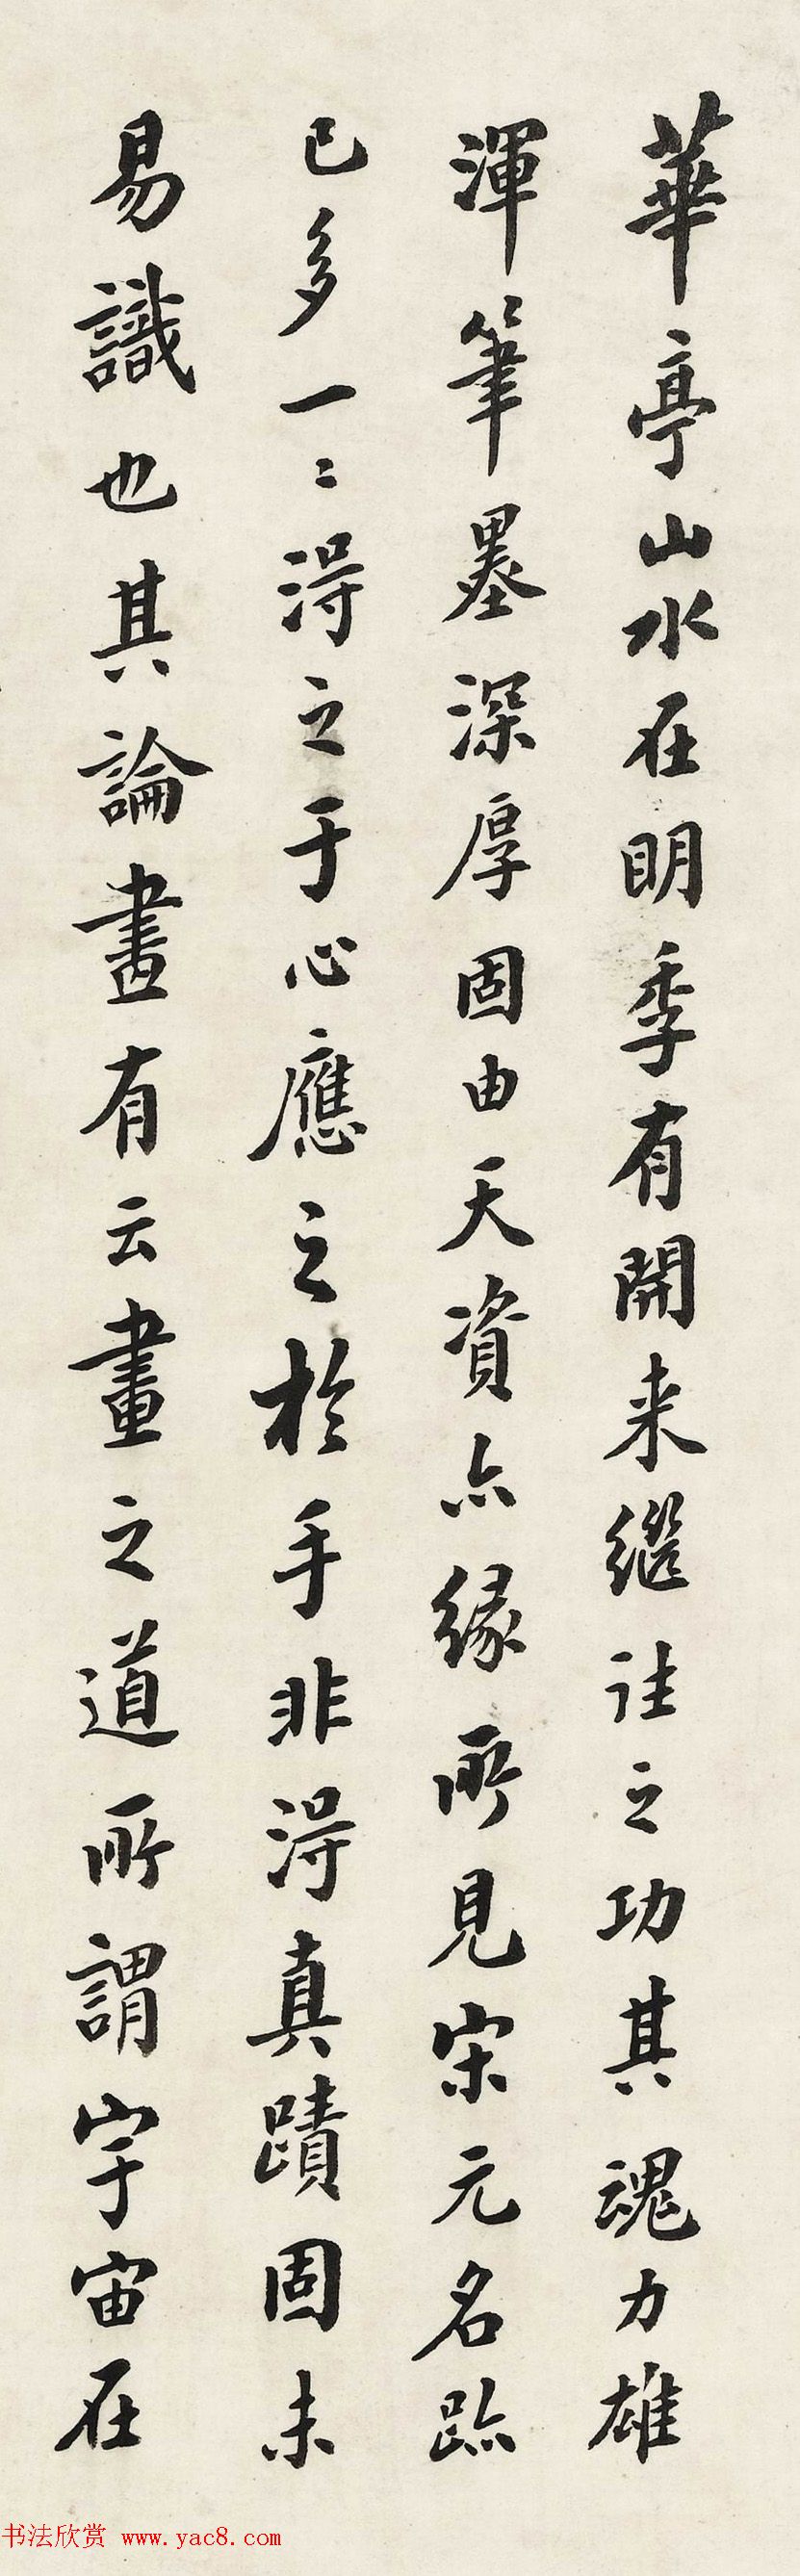 華亭山水在明季有開来繼往之功其魂力雄
渾筆墨深厚固由天資亦緣所見宋元名跡
已多一〻得之于心應之於手非得真蹟固未
易識也其論畫有云畫之道所謂宇宙在
书法欣赏 www.yac8.com